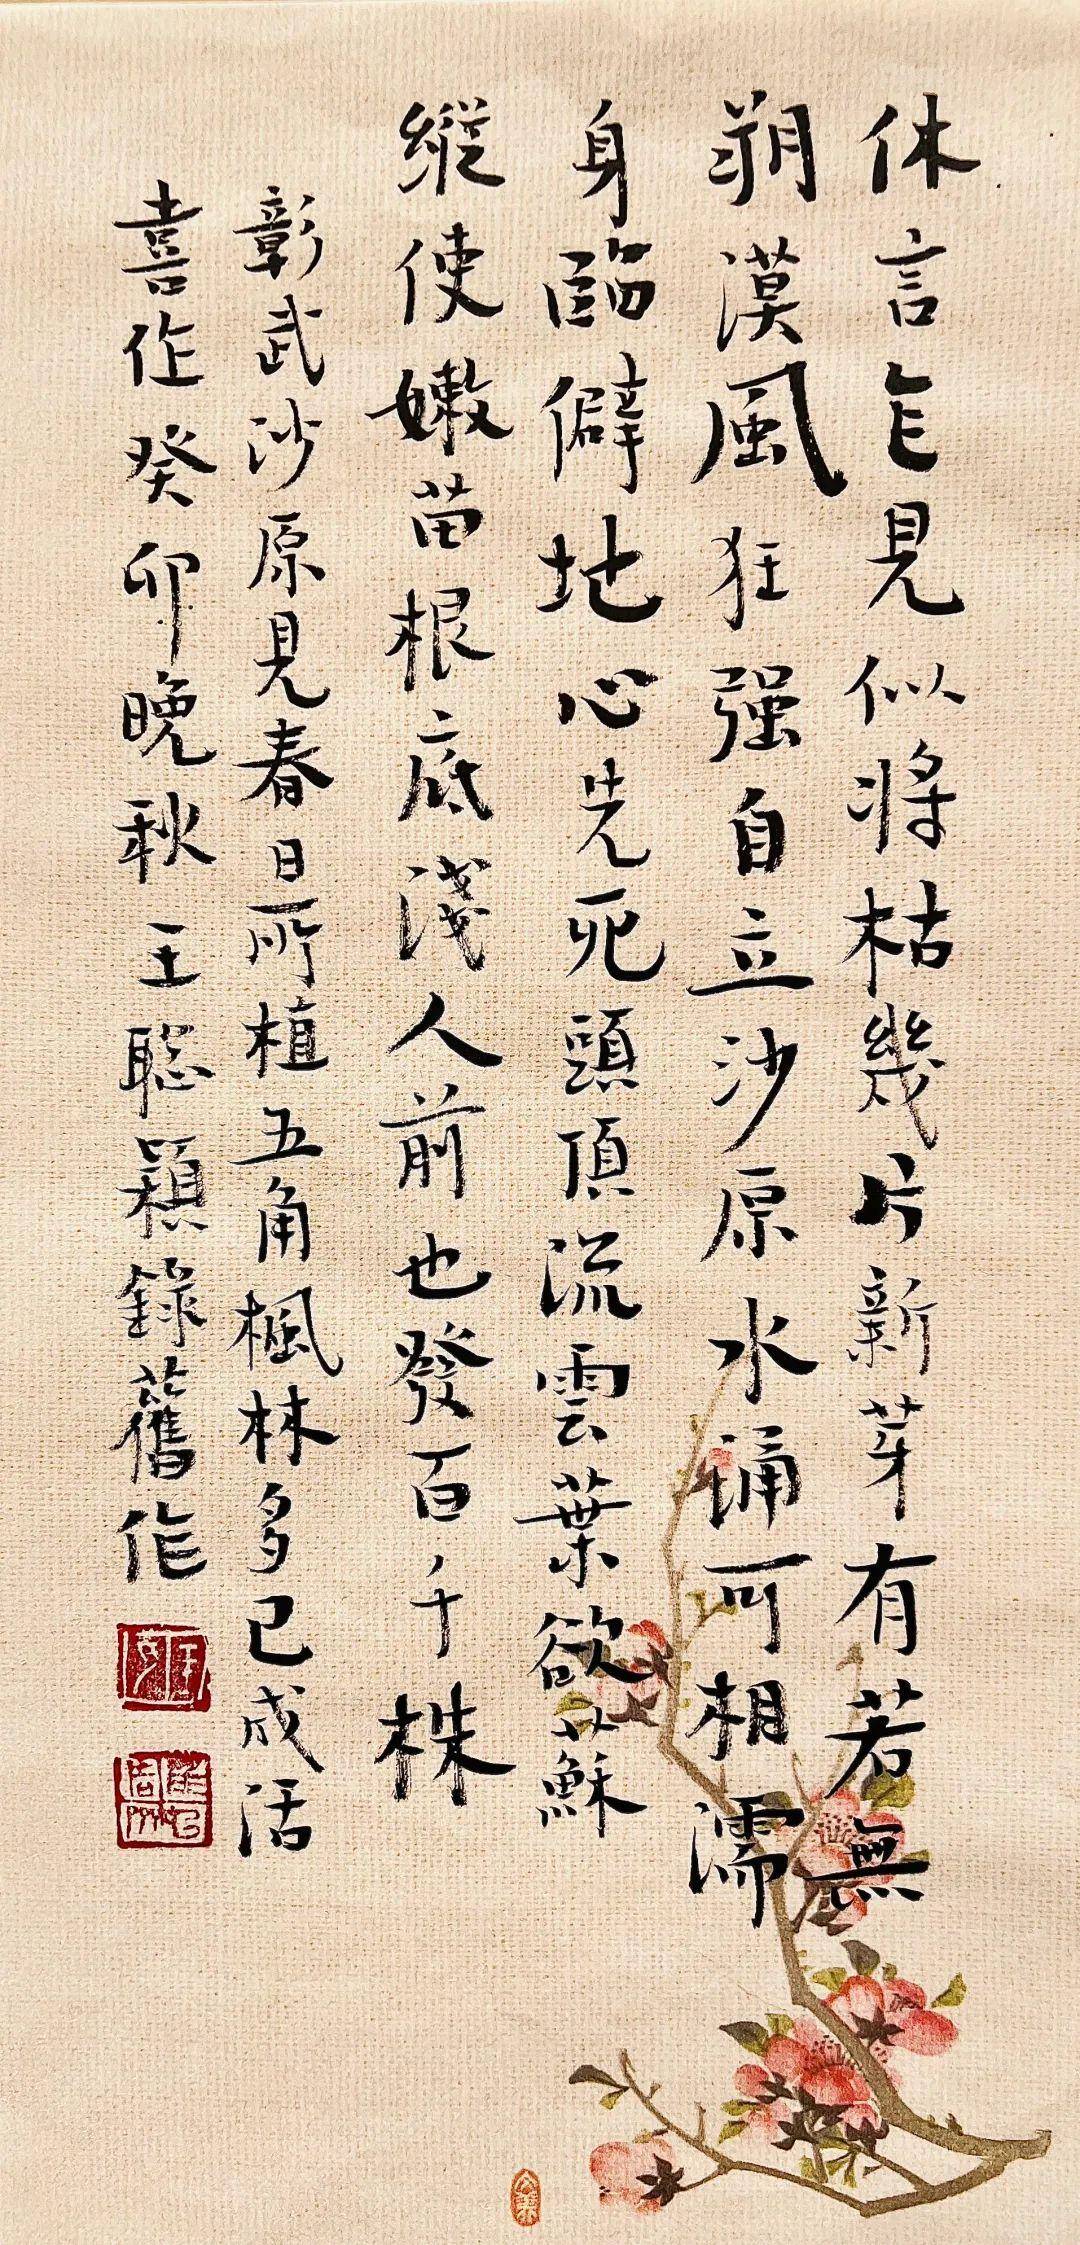 休言乍見似將枯幾片新芽有若無
朔漠風狂强自立沙原水涌可相濡
身臨僻地心先死頭頂流雲葉欲蘇
縱使嫩苗根底淺人前也發百千株
彰武沙原見春日所植五角楓林多已成活
喜作癸卯晚秋王聪穎錄舊作